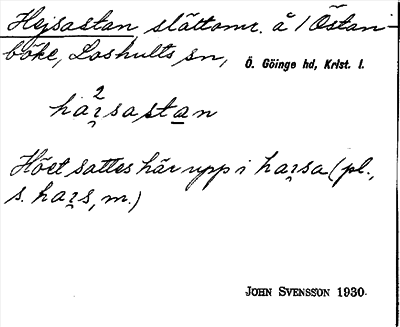 Hejsastan, slättomr. å 1 Östan-
böke, Loshults sn, Ö. Göinge hd, Krist. l.
2
haʒsastan
Höet sattes här upp i haʒsa (pl.,
s. haʒs, m.)
JOHN SVENSSON 1930.